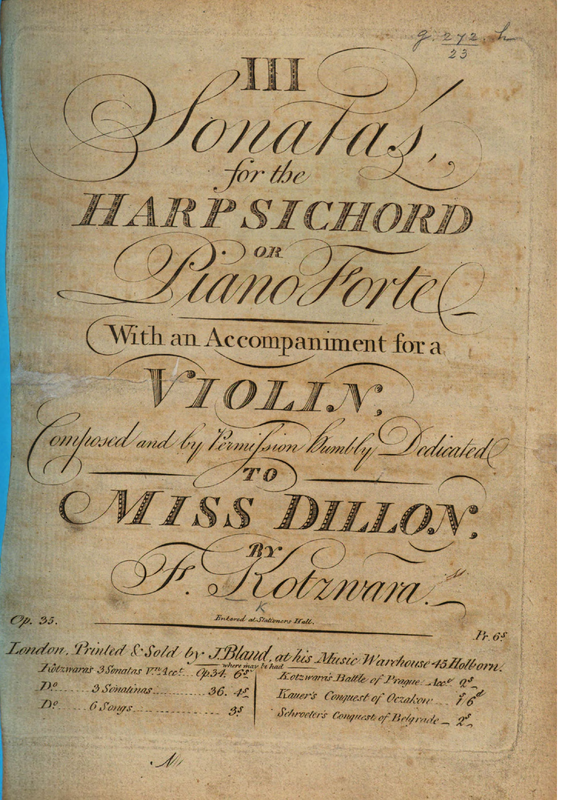 g. 272. h
23
III
Sonatas,
for the
HARPSICHORD
OR
Piano Forte
With an Accompaniment for a
VIOLIN,
Composed and by Permiſsion humbly Dedicated
TO
MISS DILLON,
BY
F. Kotzwara.
K
Entered at Stationers Hall.
Op. 35.
Pr. 6s
London, Printed & Sold by J. Bland, at his Music Warehouse 45 Holborn.
where may be had
Kotzwara's 3 Sonatas Vn. Acct. Op. 34. 6s
Do. 3 Sonatinas 36. 4s
Do. 6 Songs 3s
Kotzwara's Battle of Prague Acct. 2s
Kauer's Conquest of Oczakow 1s 6d
Schroeter's Conquest of Belgrade 2s